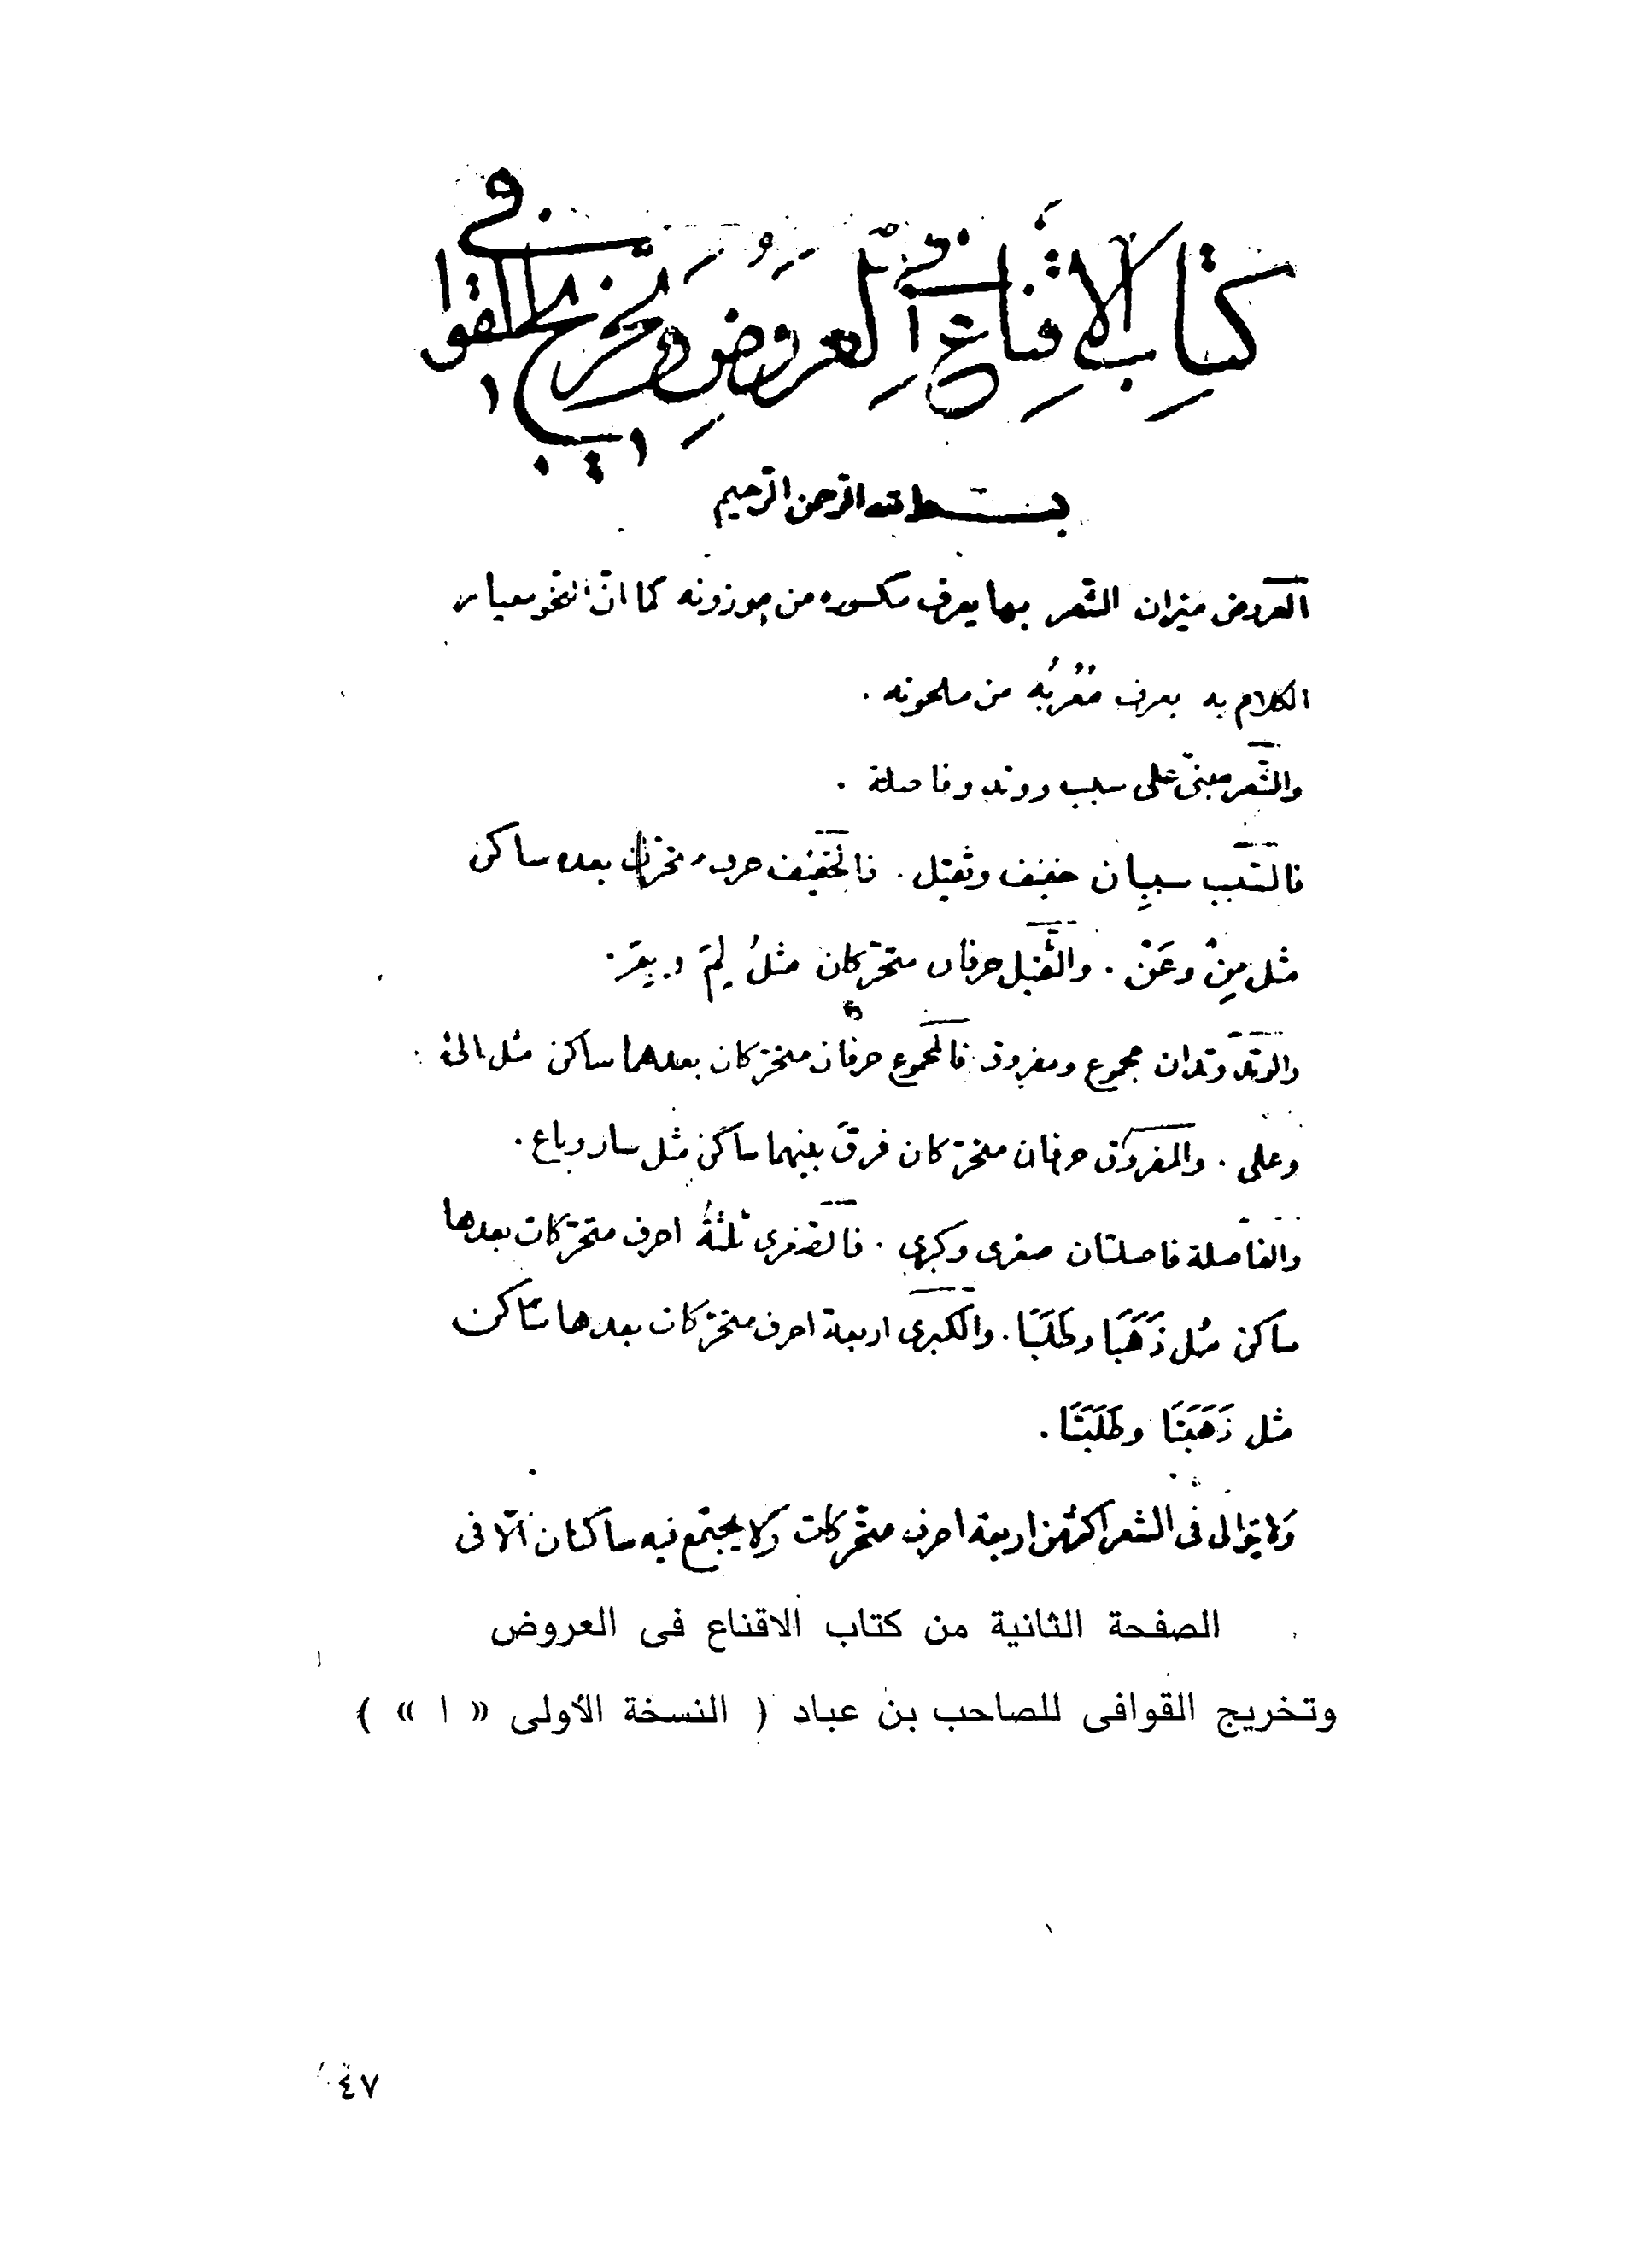 كتاب الاقناع في العروض وتخريج القوافي
بسم الله الرحمن الرحيم
العروض ميزان الشعر بها يعرف مكسوره من موزونه كما انّ النحو معيار
الكلام به يعرف مُعْرَبُه من ملحونه .
والشّعر مبنىّ على سبب ووتد وفاصلة .
فالسّبب سببان خفيف وثقيل . فالخفيف حرف متحرك بعده ساكن
مثل مِنْ وعَنْ . والثّقيل حرفان متحرّكان مثلُ لِمَ و بِمَ .
والوتد وتدان مجموع ومفروق فالمجموع حرفان متحرّكان بعدهما ساكن مثل الى
وعلى . والمفروق حرفان متحرّكان فرق بينهما ساكن مثل سار وباع .
والفاصلة فاصلتان صغرى وكبرى . فالصّغرى ثلثةُ احرف متحرّكات بعدها
ساكن مثل ذَهَبَا وطَلَبَا . والكبرى اربعة احرف متحرّكات بعدها ساكن
مثل ذَهَبَتَا وطَلَبَتَا .
ولا يتوالى فى الشعر اكثر من اربعة احرف متحرّكات ولا يجتمع فيه ساكنان الّا فى
الصفحة الثانية من كتاب الاقناع فى العروض
وتخريج القوافى للصاحب بن عباد ( النسخة الأولى « ا » )
٤٧